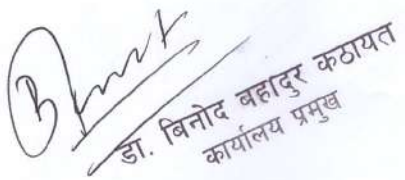 डा. बिनोद बहादुर कठायत
कार्यालय प्रमुख